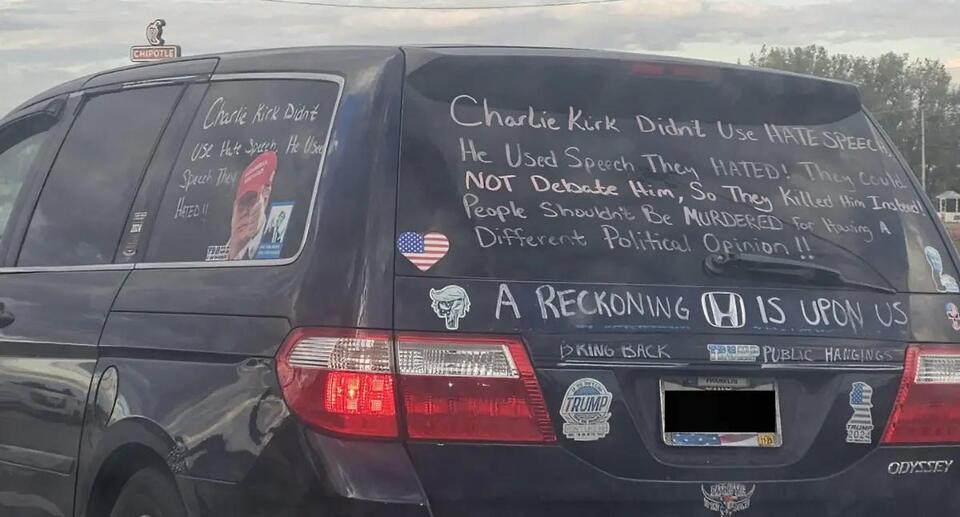 CHIPOTLE
Charlie Kirk Didn't
Use Hate Speech, He Used
Speech They
HATED !!
Charlie Kirk Didn't Use HATE SPEECH,
He Used Speech They HATED! They Could
NOT Debate Him, So They Killed Him Instead!
People Shouldn't Be MURDERED for Having A
Different Political Opinion !!
A RECKONING IS UPON US
BRING BACK PUBLIC HANGINGS
TRUMP
FRANKLIN
TRUMP
2024
ODYSSEY